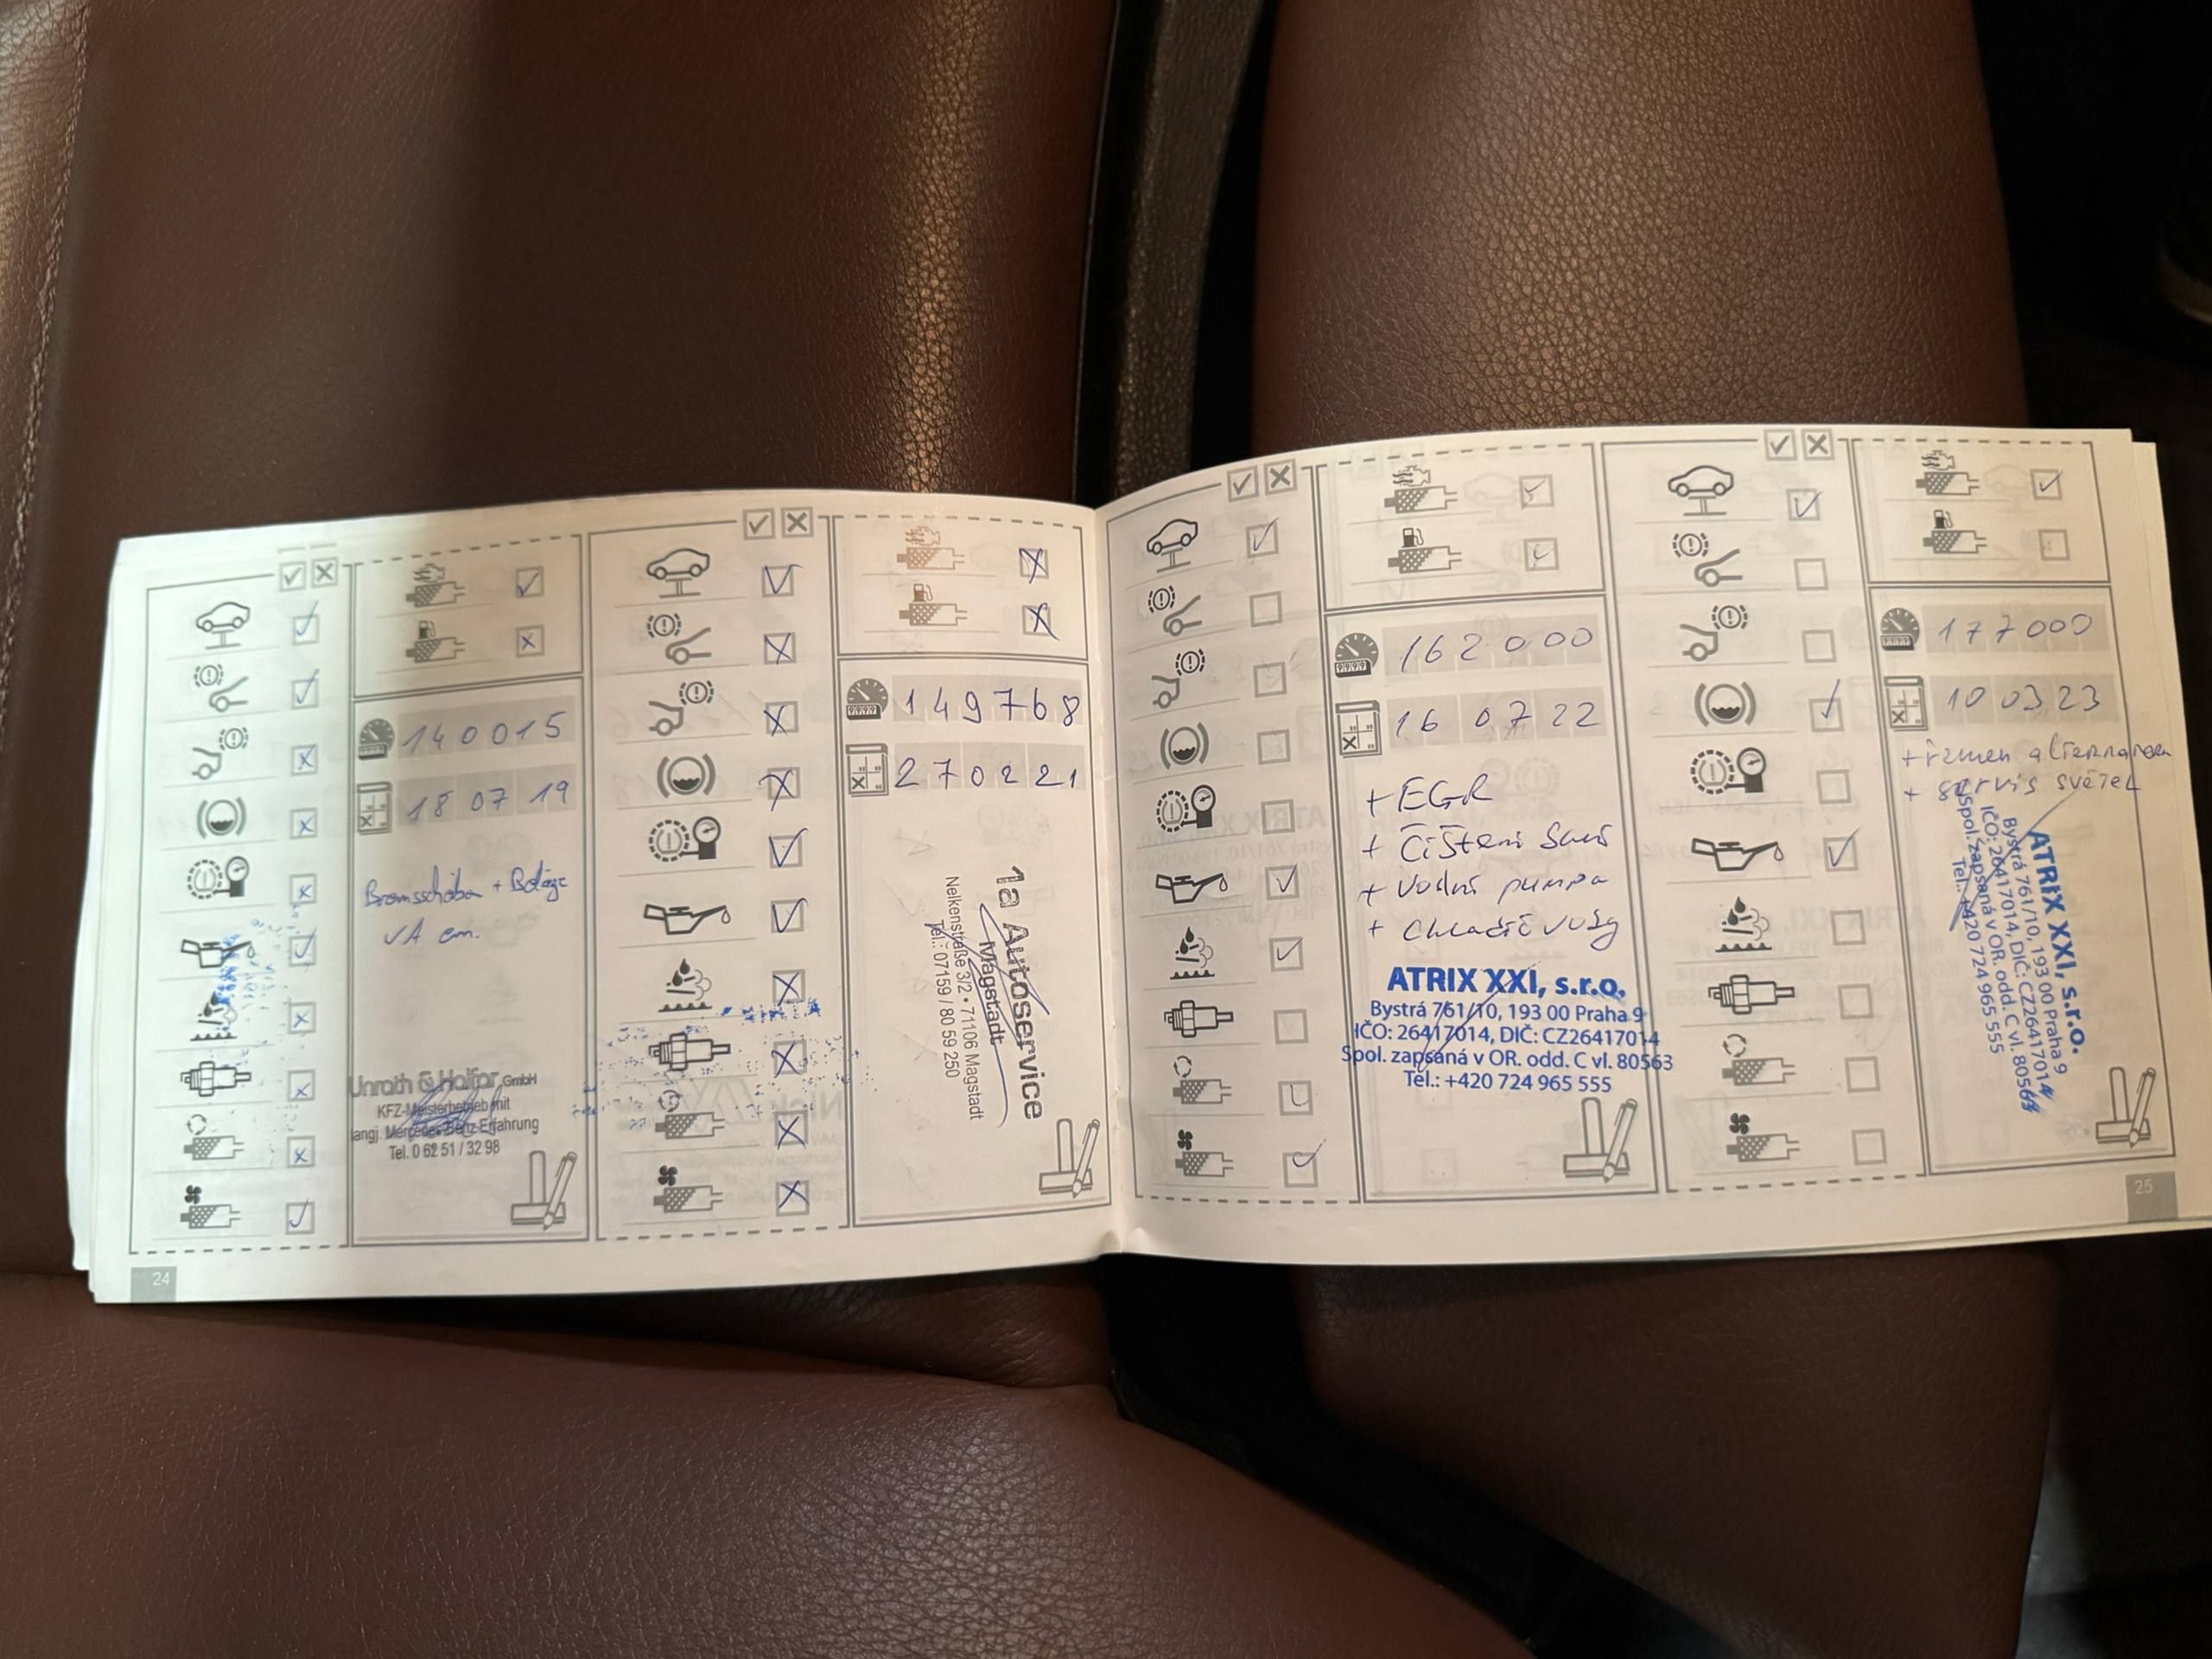 140015
18 07 19
Bremsscheiben + Beläge
VA ern.
Unrath & Halfar GmbH
KFZ-Meisterbetrieb mit
langj. Mercedes-Benz-Erfahrung
Tel. 0 62 51 / 32 98
24
149768
270221
1a Autoservice
Magstadt
Nelkenstraße 3/2 • 71106 Magstadt
Tel.: 07159 / 80 59 250
162000
16 07 22
+ EGR
+ Čištění sání
+ vodní pumpa
+ chladič vody
ATRIX XXI, s.r.o.
Bystrá 761/10, 193 00 Praha 9
IČO: 26417014, DIČ: CZ26417014
Spol. zapsaná v OR. odd. C vl. 80563
Tel.: +420 724 965 555
177000
10 03 23
+ řemen alternátoru
+ servis světel
ATRIX XXI, s.r.o.
Bystrá 761/10, 193 00 Praha 9
IČO: 26417014, DIČ: CZ26417014
Spol. zapsaná v OR. odd. C vl. 80563
Tel.: +420 724 965 555
25